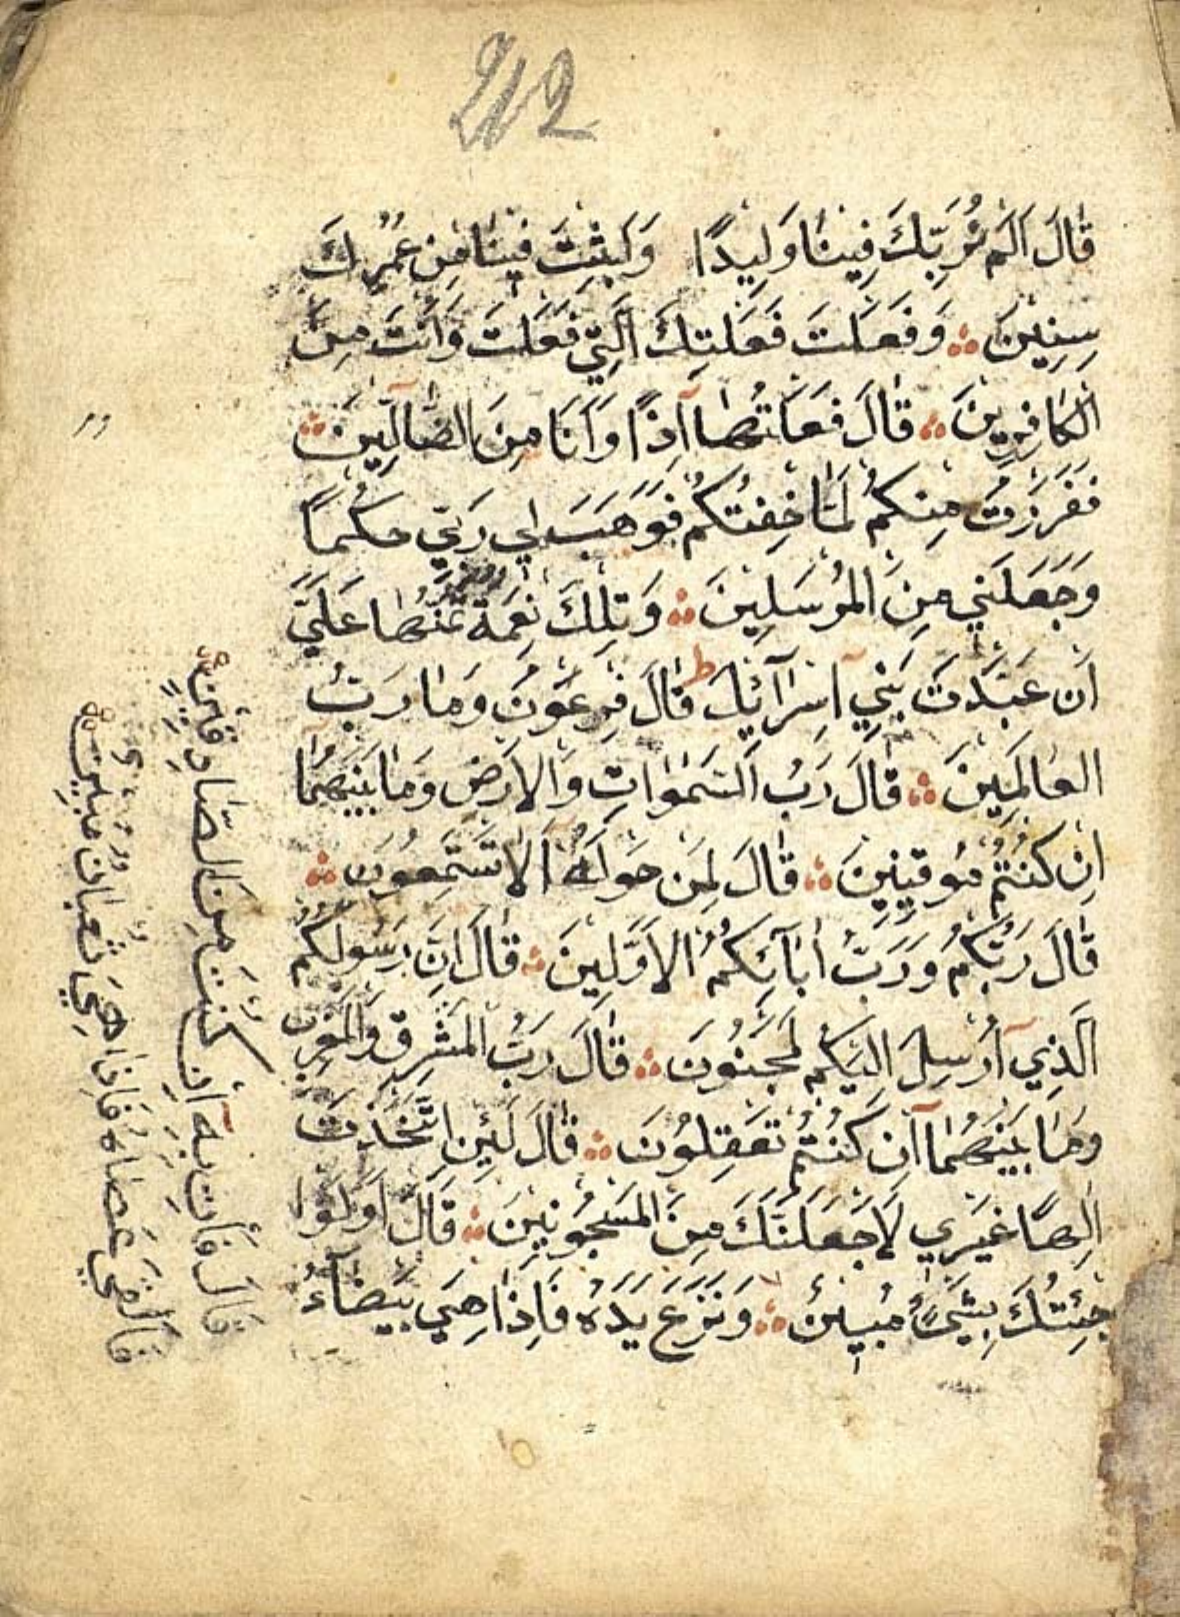 212
قَالَ اَلَمْ نُرَبِّكَ فِينَا وَلِيدًا وَلَبِثْتَ فِينَا مِنْ عُمُرِكَ
سِنِينَ وَفَعَلْتَ فَعْلَتَكَ الَّتِي فَعَلْتَ وَاَنْتَ مِنَ
الْكَافِرِينَ قَالَ فَعَلْتُهَا اِذًا وَاَنَا مِنَ الضَّالِّينَ
فَفَرَرْتُ مِنْكُمْ لَمَّا خِفْتُكُمْ فَوَهَبَ لِي رَبِّي حُكْمًا
وَجَعَلَنِي مِنَ الْمُرْسَلِينَ وَتِلْكَ نِعْمَةٌ تَمُنُّهَا عَلَيَّ
اَنْ عَبَّدْتَ بَنِي اِسْرَآئِلَ ط قَالَ فِرْعَوْنُ وَمَا رَبُّ
الْعَالَمِينَ قَالَ رَبُّ السَّمٰوَاتِ وَالْاَرْضِ وَمَا بَيْنَهُمَا
اِنْ كُنْتُمْ مُوقِنِينَ قَالَ لِمَنْ حَوْلَهُ اَلَا تَسْتَمِعُونَ
قَالَ رَبُّكُمْ وَرَبُّ اٰبَآئِكُمُ الْاَوَّلِينَ قَالَ اِنَّ رَسُولَكُمُ
الَّذِي اُرْسِلَ اِلَيْكُمْ لَمَجْنُونٌ قَالَ رَبُّ الْمَشْرِقِ وَالْمَغْرِبِ
وَمَا بَيْنَهُمَا اِنْ كُنْتُمْ تَعْقِلُونَ قَالَ لَئِنِ اتَّخَذْتَ
اِلٰهًا غَيْرِي لَاَجْعَلَنَّكَ مِنَ الْمَسْجُونِينَ قَالَ اَوَلَوْ
جِئْتُكَ بِشَيْءٍ مُبِينٍ وَنَزَعَ يَدَهُ فَاِذَا هِيَ بَيْضَآءُ
قَالَ فَأْتِ بِهِ اِنْ كُنْتَ مِنَ الصَّادِقِينَ
فَاَلْقٰي عَصَاهُ فَاِذَا هِيَ ثُعْبَانٌ مُبِينٌ